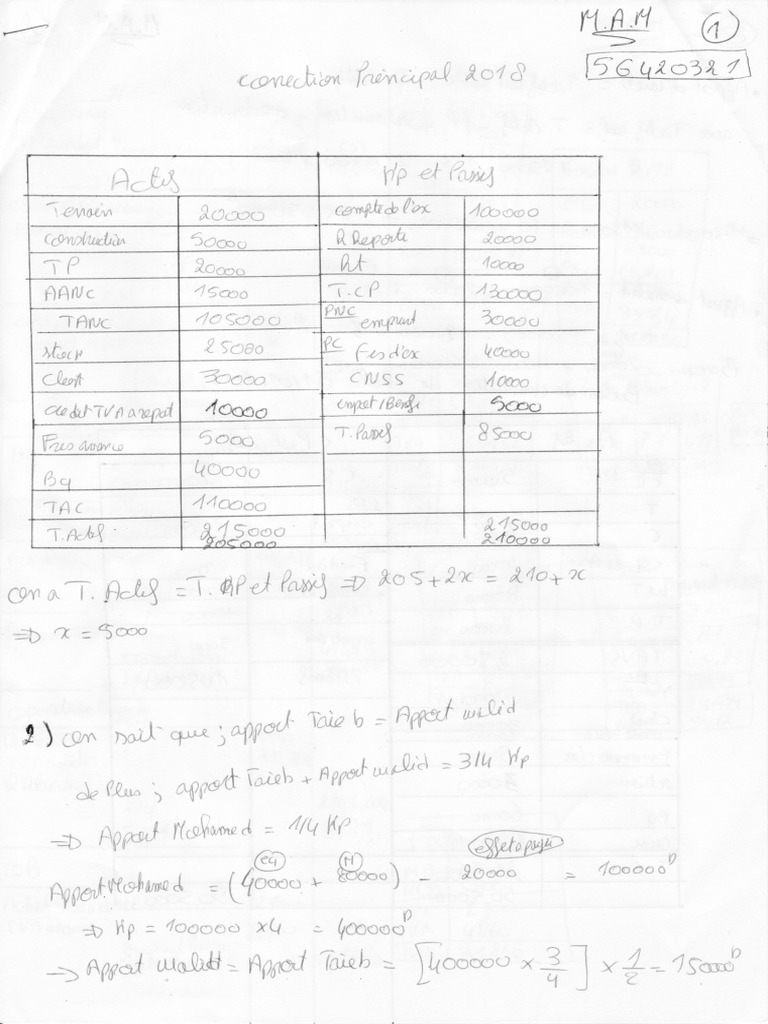 M.A.M 1
56420321
Conection Principal 2018
Actifs Kp et Passifs
Terrain 20000 compte de l'ex 100000
construction 50000 R Reporté 20000
TP 20000 Rt 10000
AANC 15000 T.CP 130000
TANC 105000 PNC emprunt 30000
stock 25000 PC Frs d'ex 40000
Client 30000 CNSS 10000
credit TVA a report 10000 impot/Bénéf 5000
Frs avance 5000 T. Passif 85000
Bq 40000
TAC 110000
T. Actif 215000 215000
205000 210000
on a T. Actif = T. KP et Passifs => 205 + 2x = 210 + x
=> x = 5000
2) on sait que ; apport Taieb = Apport walid
de Plus ; apport Taieb + Apport walid = 3/4 Kp
=> Apport Mohamed = 1/4 Kp
eq M effet a payer
Apport Mohamed = (40000 + 80000) - 20000 = 100000D
=> Kp = 100000 x4 = 400000D
=> Apport walid = Apport Taieb = [400000 x 3/4] x 1/2 = 15000D